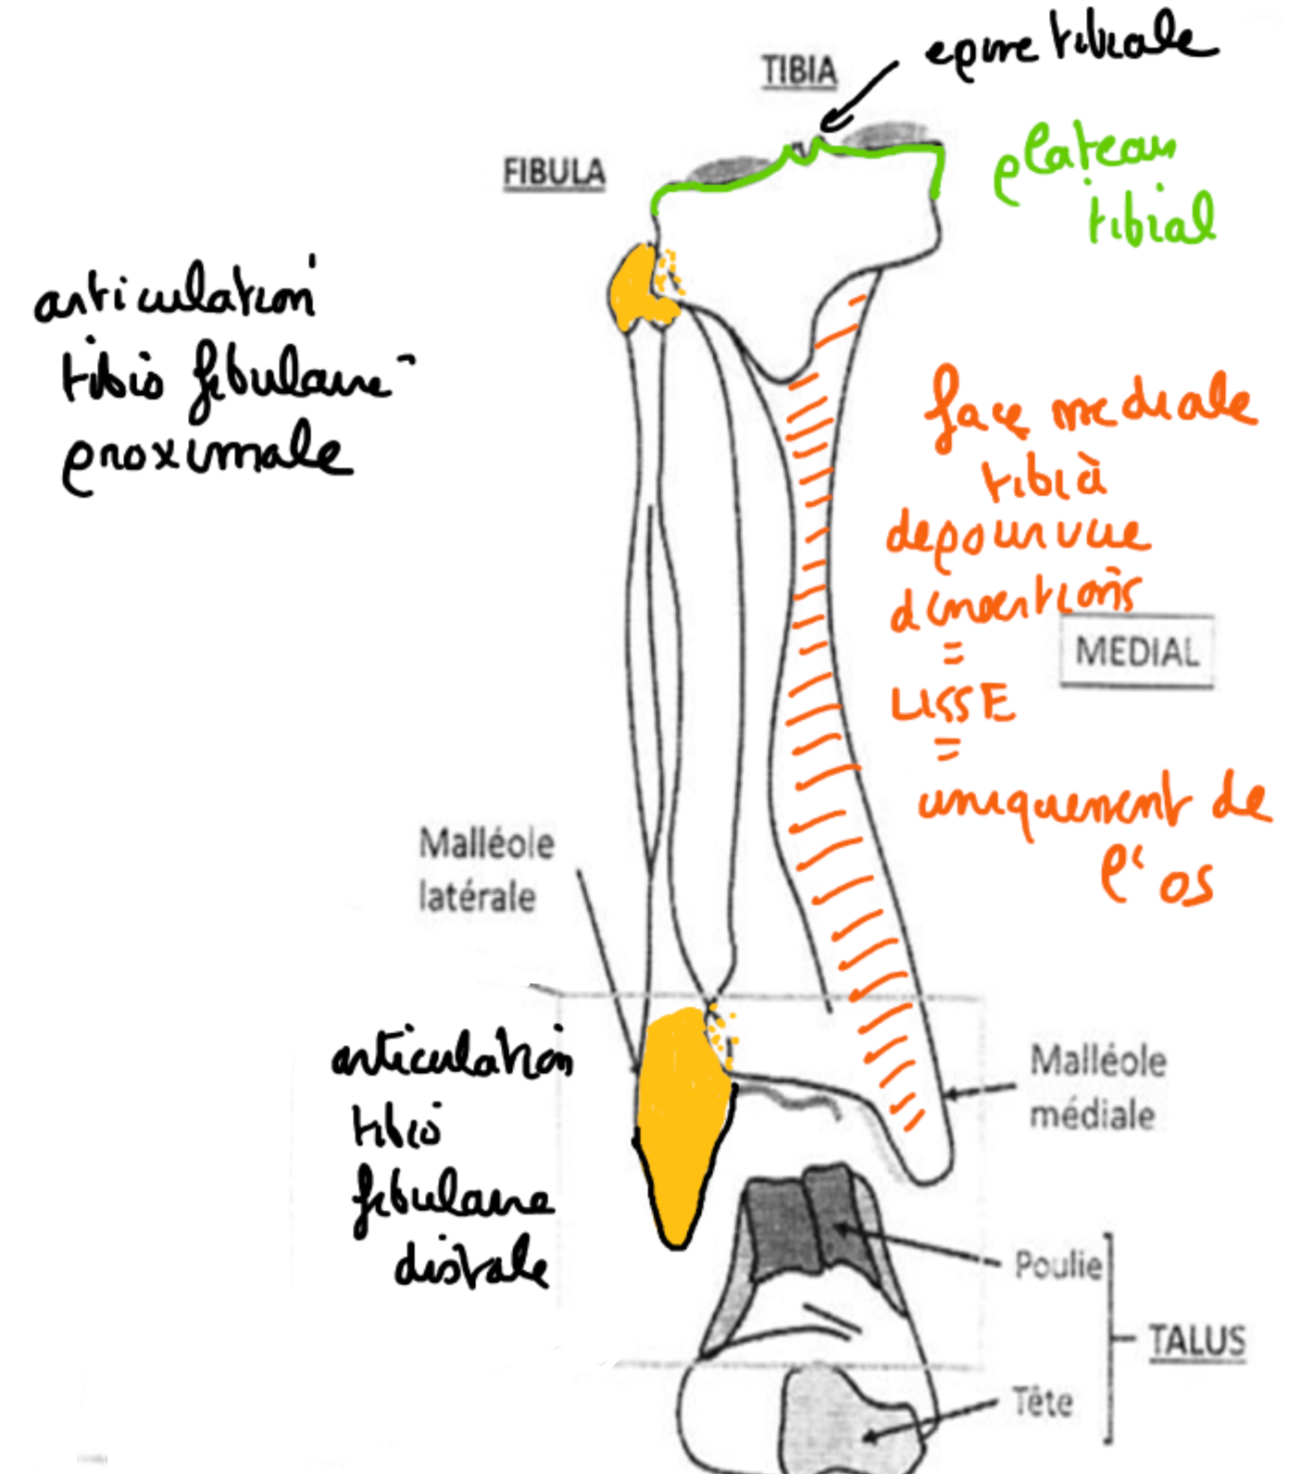 epine tibiale
TIBIA
plateau
tibial
FIBULA
articulation
tibio fibulaire
proximale
face mediale
tibia
depourvue
d'insertions
=
LISSE
=
uniquement de
l'os
MEDIAL
Malléole
latérale
articulation
tibio
fibulaire
distale
Malléole
médiale
Poulie
TALUS
Tête